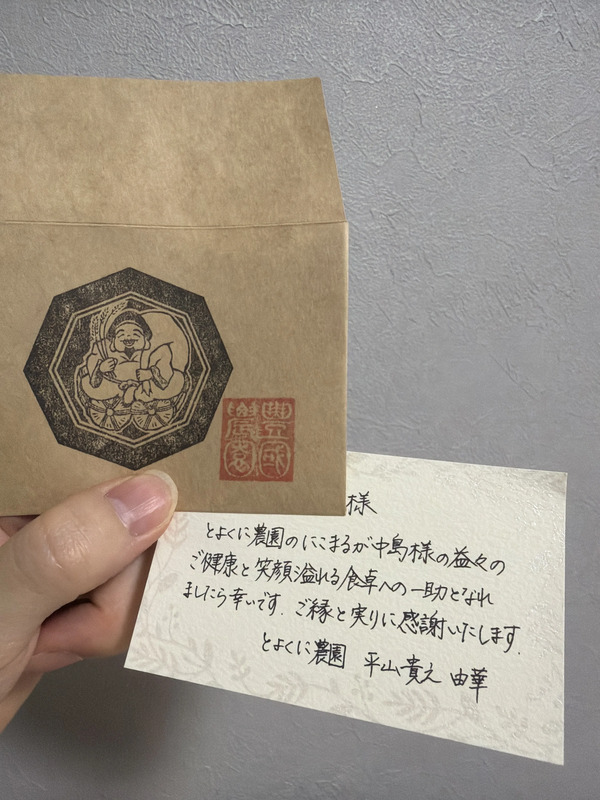 豊国
農園
様
とよくに農園のにこまるが中島様の益々の
ご健康と笑顔溢れる食卓への一助となれ
ましたら幸いです。ご縁と実りに感謝いたします。
とよくに農園 平山貴之 由華